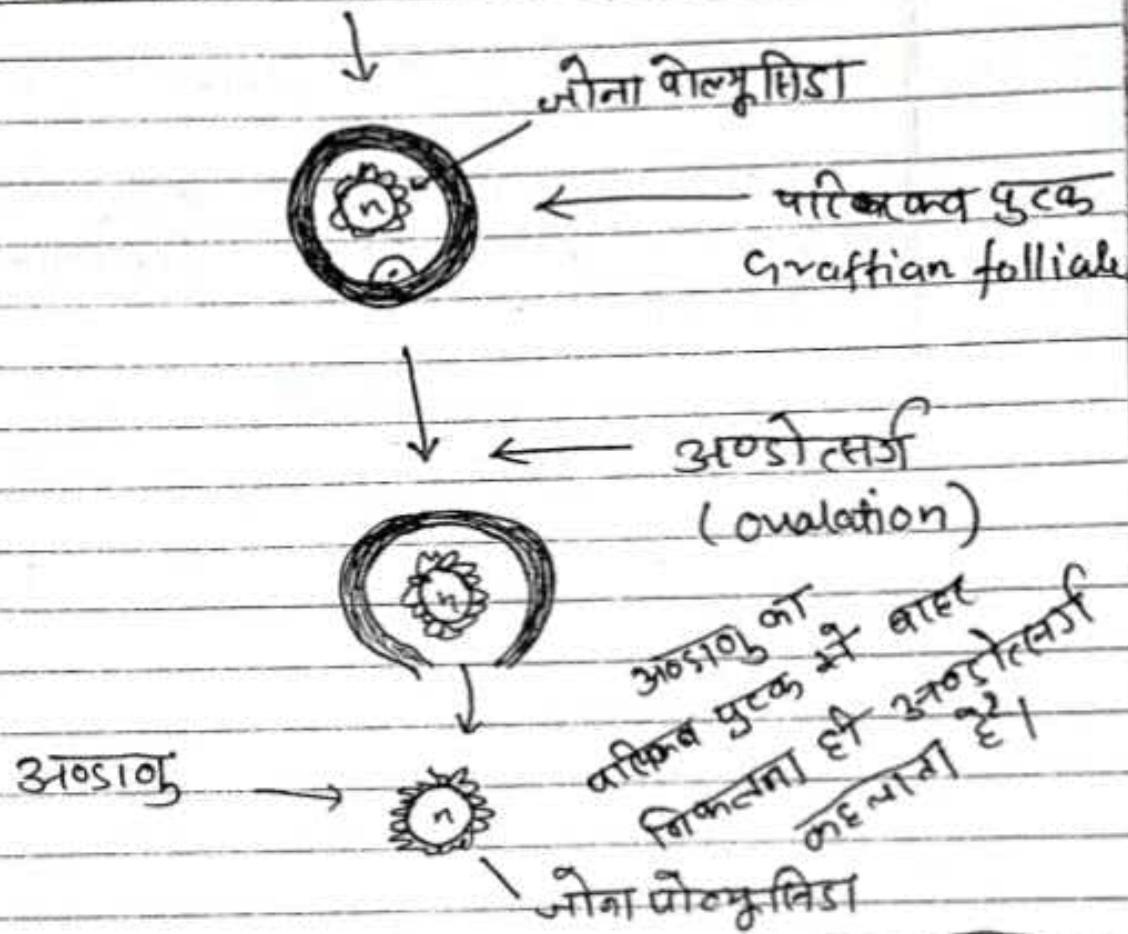 जोना पोल्यूसिडा
n
परिपक्व पुटक
Graffian folliale
अण्डोत्सर्ग
(ovalation)
n
अण्डाणु का
परिपक्व पुटक से बाहर
निकलना ही अण्डोत्सर्ग
कहलाता है।
अण्डाणु
n
जोना पोल्यूसिडा